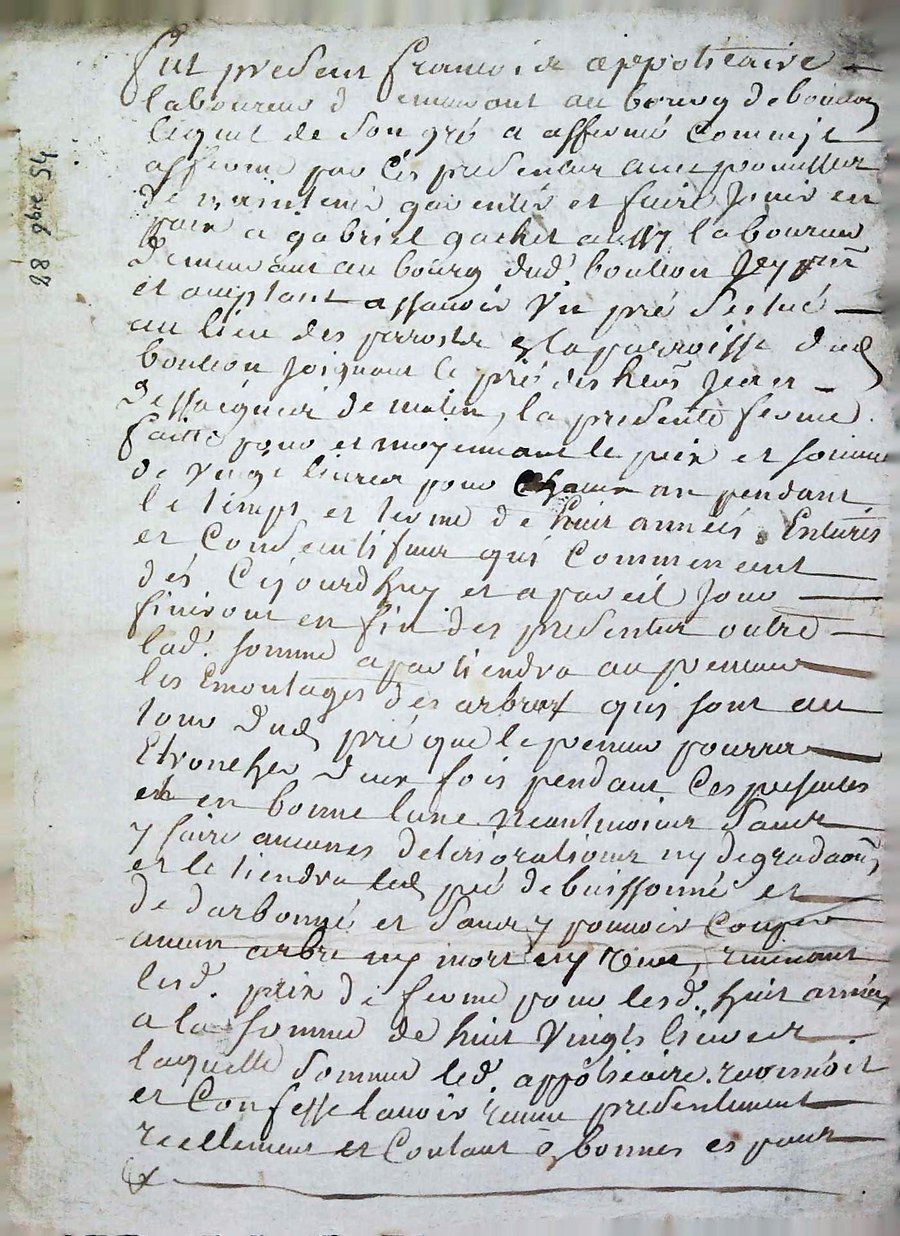 28 9bre 54
fut present francois appoticaire
laboureur demeurant au bourg de boulion
lequel de son gré a affermé comme il
afferme par ces presentes avec promesse
de maintenir garentir et faire jouir en
paix a gabriel gachet aussy laboureur
demeurant au bourg dud' boulion
et acceptant assavoir un pré scitué
au lieu des parroisse dud
boulion joignant le pré des heirs jean
de matin, la presente ferme
faitte pour et moyennant le prix et somme
de vingt livres pour chacun an pendant
le temps et terme de huit années. Entieres
et consecutifves qui commencent
dés cejourdhuy et a pareil jour
finiront en fin des presentes outre
lad. somme apartiendra au preneur
les emontages des arbres qui sont au
tour dud pré que le preneur pourra
etroncher deux fois pendant ces presentes
et en bonne lune neantmoins sans
y faire aucunes deteriorations ny degradaons,
et le tiendra led pré debuissonné et
de darbonné et sans y pouvoir couper
aucun arbre ny mort ny vif, revenant
lesd. prix de ferme pour lesd. huit années
a la somme de huit vingts livres
laquelle somme led. appoticaire reconnoit
et confesse lavoir receue presentement
reellement et contant en bonnes es pour